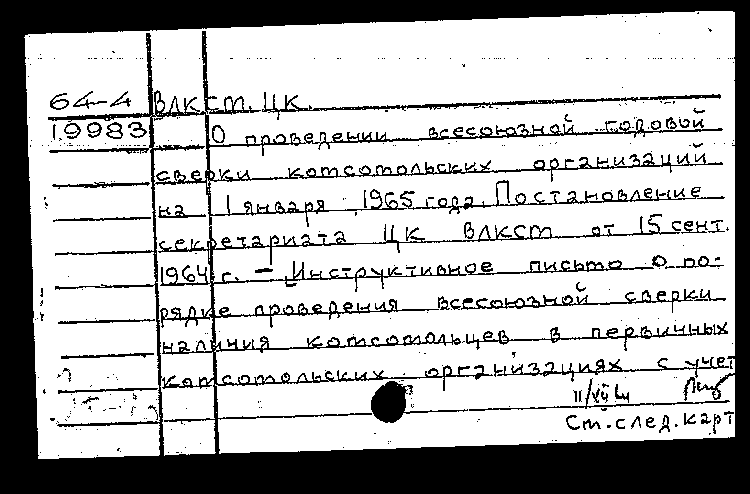 64-4 ВЛКСМ. ЦК.
19983 О проведении всесоюзной годовой
сверки комсомольских организаций
на 1 января 1965 года. Постановление
секретариата ЦК ВЛКСМ от 15 сент.
1964 г. — Инструктивное письмо о по-
рядке проведения всесоюзной сверки
наличия комсомольцев в первичных
комсомольских организациях с учет
См. след. карт